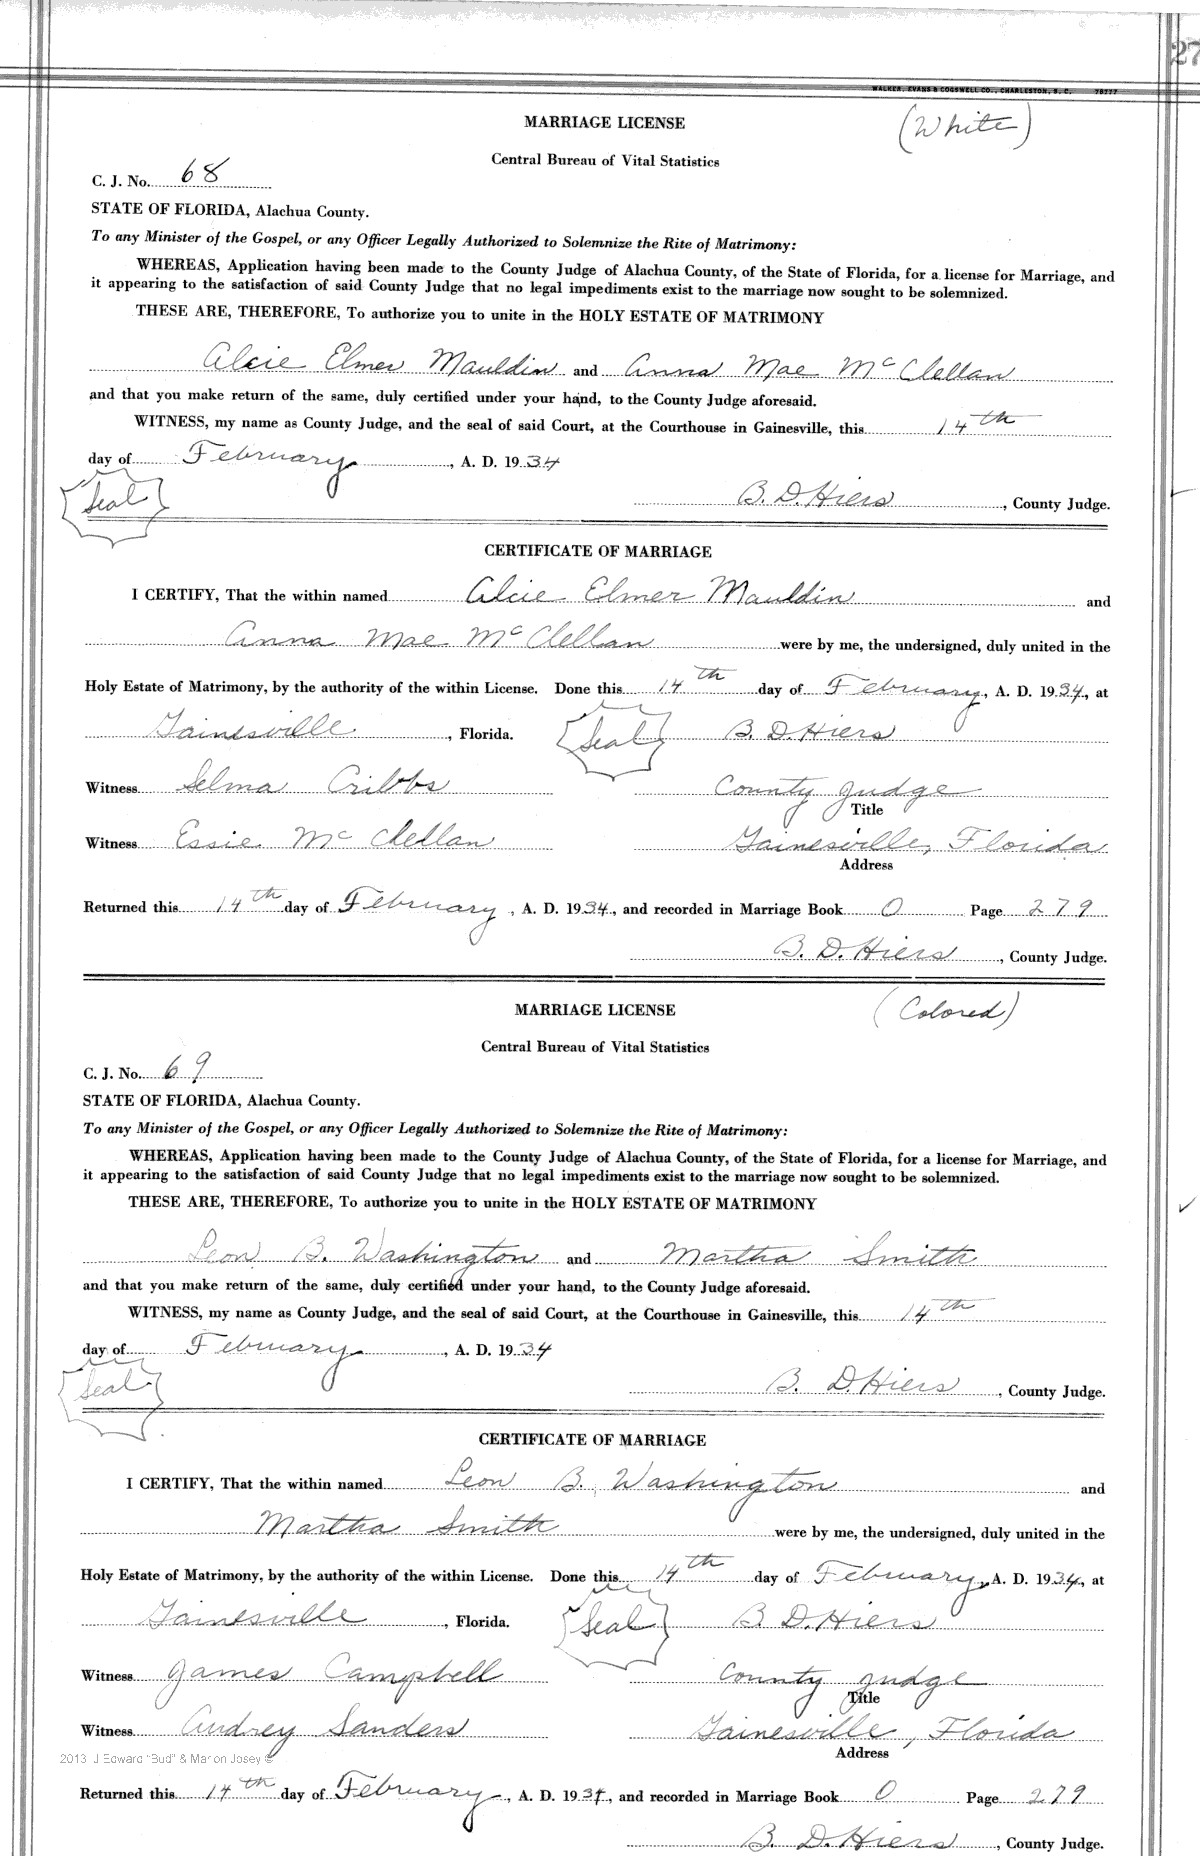 27
WALKER, EVANS & COGSWELL CO., CHARLESTON, S. C. 78777
MARRIAGE LICENSE
(White)
Central Bureau of Vital Statistics
C. J. No. 68
STATE OF FLORIDA, Alachua County.
To any Minister of the Gospel, or any Officer Legally Authorized to Solemnize the Rite of Matrimony:
WHEREAS, Application having been made to the County Judge of Alachua County, of the State of Florida, for a license for Marriage, and
it appearing to the satisfaction of said County Judge that no legal impediments exist to the marriage now sought to be solemnized.
THESE ARE, THEREFORE, To authorize you to unite in the HOLY ESTATE OF MATRIMONY
Alcie Elmer Mauldin and Anna Mae McClellan
and that you make return of the same, duly certified under your hand, to the County Judge aforesaid.
WITNESS, my name as County Judge, and the seal of said Court, at the Courthouse in Gainesville, this 14th
day of February, A. D. 1934
Seal
B. D. Hiers, County Judge.
CERTIFICATE OF MARRIAGE
I CERTIFY, That the within named Alcie Elmer Mauldin and
Anna Mae McClellan were by me, the undersigned, duly united in the
Holy Estate of Matrimony, by the authority of the within License. Done this 14th day of February, A. D. 1934, at
Gainesville, Florida. Seal B. D. Hiers
Witness Selma Cribbs County Judge
Title
Witness Essie McClellan Gainesville, Florida
Address
Returned this 14th day of February, A. D. 1934, and recorded in Marriage Book O Page 279
B. D. Hiers, County Judge.
MARRIAGE LICENSE
(Colored)
Central Bureau of Vital Statistics
C. J. No. 69
STATE OF FLORIDA, Alachua County.
To any Minister of the Gospel, or any Officer Legally Authorized to Solemnize the Rite of Matrimony:
WHEREAS, Application having been made to the County Judge of Alachua County, of the State of Florida, for a license for Marriage, and
it appearing to the satisfaction of said County Judge that no legal impediments exist to the marriage now sought to be solemnized.
THESE ARE, THEREFORE, To authorize you to unite in the HOLY ESTATE OF MATRIMONY
Leon B. Washington and Martha Smith
and that you make return of the same, duly certified under your hand, to the County Judge aforesaid.
WITNESS, my name as County Judge, and the seal of said Court, at the Courthouse in Gainesville, this 14th
day of February, A. D. 1934
Seal
B. D. Hiers, County Judge.
CERTIFICATE OF MARRIAGE
I CERTIFY, That the within named Leon B. Washington and
Martha Smith were by me, the undersigned, duly united in the
Holy Estate of Matrimony, by the authority of the within License. Done this 14th day of February, A. D. 1934, at
Gainesville, Florida. Seal B. D. Hiers
Witness James Campbell County Judge
Title
Witness Audrey Sanders Gainesville, Florida
Address
2013 J Edward "Bud" & Marion Josey ©
Returned this 14th day of February, A. D. 1934, and recorded in Marriage Book O Page 279
B. D. Hiers, County Judge.